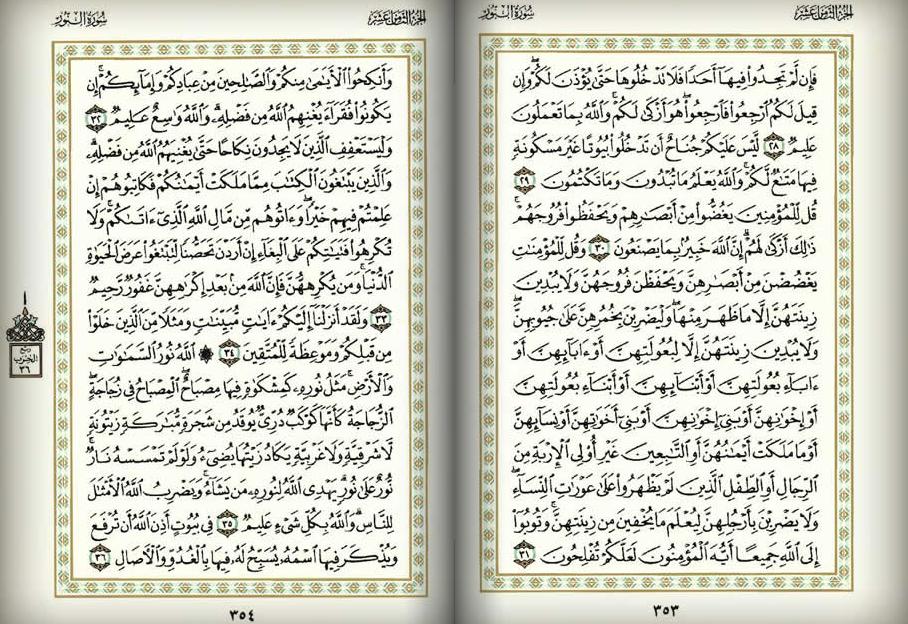 الجزء الثامن عشر
سورة النور
فَإِن لَّمْ تَجِدُوا۟ فِيهَآ أَحَدًا فَلَا تَدْخُلُوهَا حَتَّىٰ يُؤْذَنَ لَكُمْ ۖ وَإِن
قِيلَ لَكُمُ ٱرْجِعُوا۟ فَٱرْجِعُوا۟ ۖ هُوَ أَزْكَىٰ لَكُمْ ۚ وَٱللَّهُ بِمَا تَعْمَلُونَ
عَلِيمٌ ٢٨ لَّيْسَ عَلَيْكُمْ جُنَاحٌ أَن تَدْخُلُوا۟ بُيُوتًا غَيْرَ مَسْكُونَةٍ
فِيهَا مَتَـٰعٌ لَّكُمْ ۚ وَٱللَّهُ يَعْلَمُ مَا تُبْدُونَ وَمَا تَكْتُمُونَ ٢٩
قُل لِّلْمُؤْمِنِينَ يَغُضُّوا۟ مِنْ أَبْصَـٰرِهِمْ وَيَحْفَظُوا۟ فُرُوجَهُمْ ۚ
ذَٰلِكَ أَزْكَىٰ لَهُمْ ۗ إِنَّ ٱللَّهَ خَبِيرٌۢ بِمَا يَصْنَعُونَ ٣٠ وَقُل لِّلْمُؤْمِنَـٰتِ
يَغْضُضْنَ مِنْ أَبْصَـٰرِهِنَّ وَيَحْفَظْنَ فُرُوجَهُنَّ وَلَا يُبْدِينَ
زِينَتَهُنَّ إِلَّا مَا ظَهَرَ مِنْهَا ۖ وَلْيَضْرِبْنَ بِخُمُرِهِنَّ عَلَىٰ جُيُوبِهِنَّ ۖ
وَلَا يُبْدِينَ زِينَتَهُنَّ إِلَّا لِبُعُولَتِهِنَّ أَوْ ءَابَآئِهِنَّ أَوْ
ءَابَآءِ بُعُولَتِهِنَّ أَوْ أَبْنَآئِهِنَّ أَوْ أَبْنَآءِ بُعُولَتِهِنَّ
أَوْ إِخْوَٰنِهِنَّ أَوْ بَنِىٓ إِخْوَٰنِهِنَّ أَوْ بَنِىٓ أَخَوَٰتِهِنَّ أَوْ نِسَآئِهِنَّ
أَوْ مَا مَلَكَتْ أَيْمَـٰنُهُنَّ أَوِ ٱلتَّـٰبِعِينَ غَيْرِ أُو۟لِى ٱلْإِرْبَةِ مِنَ
ٱلرِّجَالِ أَوِ ٱلطِّفْلِ ٱلَّذِينَ لَمْ يَظْهَرُوا۟ عَلَىٰ عَوْرَٰتِ ٱلنِّسَآءِ ۖ
وَلَا يَضْرِبْنَ بِأَرْجُلِهِنَّ لِيُعْلَمَ مَا يُخْفِينَ مِن زِينَتِهِنَّ ۚ وَتُوبُوٓا۟
إِلَى ٱللَّهِ جَمِيعًا أَيُّهَ ٱلْمُؤْمِنُونَ لَعَلَّكُمْ تُفْلِحُونَ ٣١
٣٥٣
الجزء الثامن عشر
سورة النور
وَأَنكِحُوا۟ ٱلْأَيَـٰمَىٰ مِنكُمْ وَٱلصَّـٰلِحِينَ مِنْ عِبَادِكُمْ وَإِمَآئِكُمْ ۚ إِن
يَكُونُوا۟ فُقَرَآءَ يُغْنِهِمُ ٱللَّهُ مِن فَضْلِهِۦ ۗ وَٱللَّهُ وَٰسِعٌ عَلِيمٌ ٣٢
وَلْيَسْتَعْفِفِ ٱلَّذِينَ لَا يَجِدُونَ نِكَاحًا حَتَّىٰ يُغْنِيَهُمُ ٱللَّهُ مِن فَضْلِهِۦ ۗ
وَٱلَّذِينَ يَبْتَغُونَ ٱلْكِتَـٰبَ مِمَّا مَلَكَتْ أَيْمَـٰنُكُمْ فَكَاتِبُوهُمْ إِنْ
عَلِمْتُمْ فِيهِمْ خَيْرًا ۖ وَءَاتُوهُم مِّن مَّالِ ٱللَّهِ ٱلَّذِىٓ ءَاتَىٰكُمْ ۚ وَلَا
تُكْرِهُوا۟ فَتَيَـٰتِكُمْ عَلَى ٱلْبِغَآءِ إِنْ أَرَدْنَ تَحَصُّنًا لِّتَبْتَغُوا۟ عَرَضَ ٱلْحَيَوٰةِ
ٱلدُّنْيَا ۚ وَمَن يُكْرِههُّنَّ فَإِنَّ ٱللَّهَ مِنۢ بَعْدِ إِكْرَٰهِهِنَّ غَفُورٌ رَّحِيمٌ
٣٣ وَلَقَدْ أَنزَلْنَآ إِلَيْكُمْ ءَايَـٰتٍ مُّبَيِّنَـٰتٍ وَمَثَلًا مِّنَ ٱلَّذِينَ خَلَوْا۟
مِن قَبْلِكُمْ وَمَوْعِظَةً لِّلْمُتَّقِينَ ٣٤ ۞ ٱللَّهُ نُورُ ٱلسَّمَـٰوَٰتِ
وَٱلْأَرْضِ ۚ مَثَلُ نُورِهِۦ كَمِشْكَوٰةٍ فِيهَا مِصْبَاحٌ ۖ ٱلْمِصْبَاحُ فِى زُجَاجَةٍ ۖ
ٱلزُّجَاجَةُ كَأَنَّهَا كَوْكَبٌ دُرِّىٌّ يُوقَدُ مِن شَجَرَةٍ مُّبَـٰرَكَةٍ زَيْتُونَةٍ
لَّا شَرْقِيَّةٍ وَلَا غَرْبِيَّةٍ يَكَادُ زَيْتُهَا يُضِىٓءُ وَلَوْ لَمْ تَمْسَسْهُ نَارٌ ۚ
نُّورٌ عَلَىٰ نُورٍ ۗ يَهْدِى ٱللَّهُ لِنُورِهِۦ مَن يَشَآءُ ۚ وَيَضْرِبُ ٱللَّهُ ٱلْأَمْثَـٰلَ
لِلنَّاسِ ۗ وَٱللَّهُ بِكُلِّ شَىْءٍ عَلِيمٌ ٣٥ فِى بُيُوتٍ أَذِنَ ٱللَّهُ أَن تُرْفَعَ
وَيُذْكَرَ فِيهَا ٱسْمُهُۥ يُسَبِّحُ لَهُۥ فِيهَا بِٱلْغُدُوِّ وَٱلْـَٔاصَالِ ٣٦
ربع
الحزب
٣٦
٣٥٤